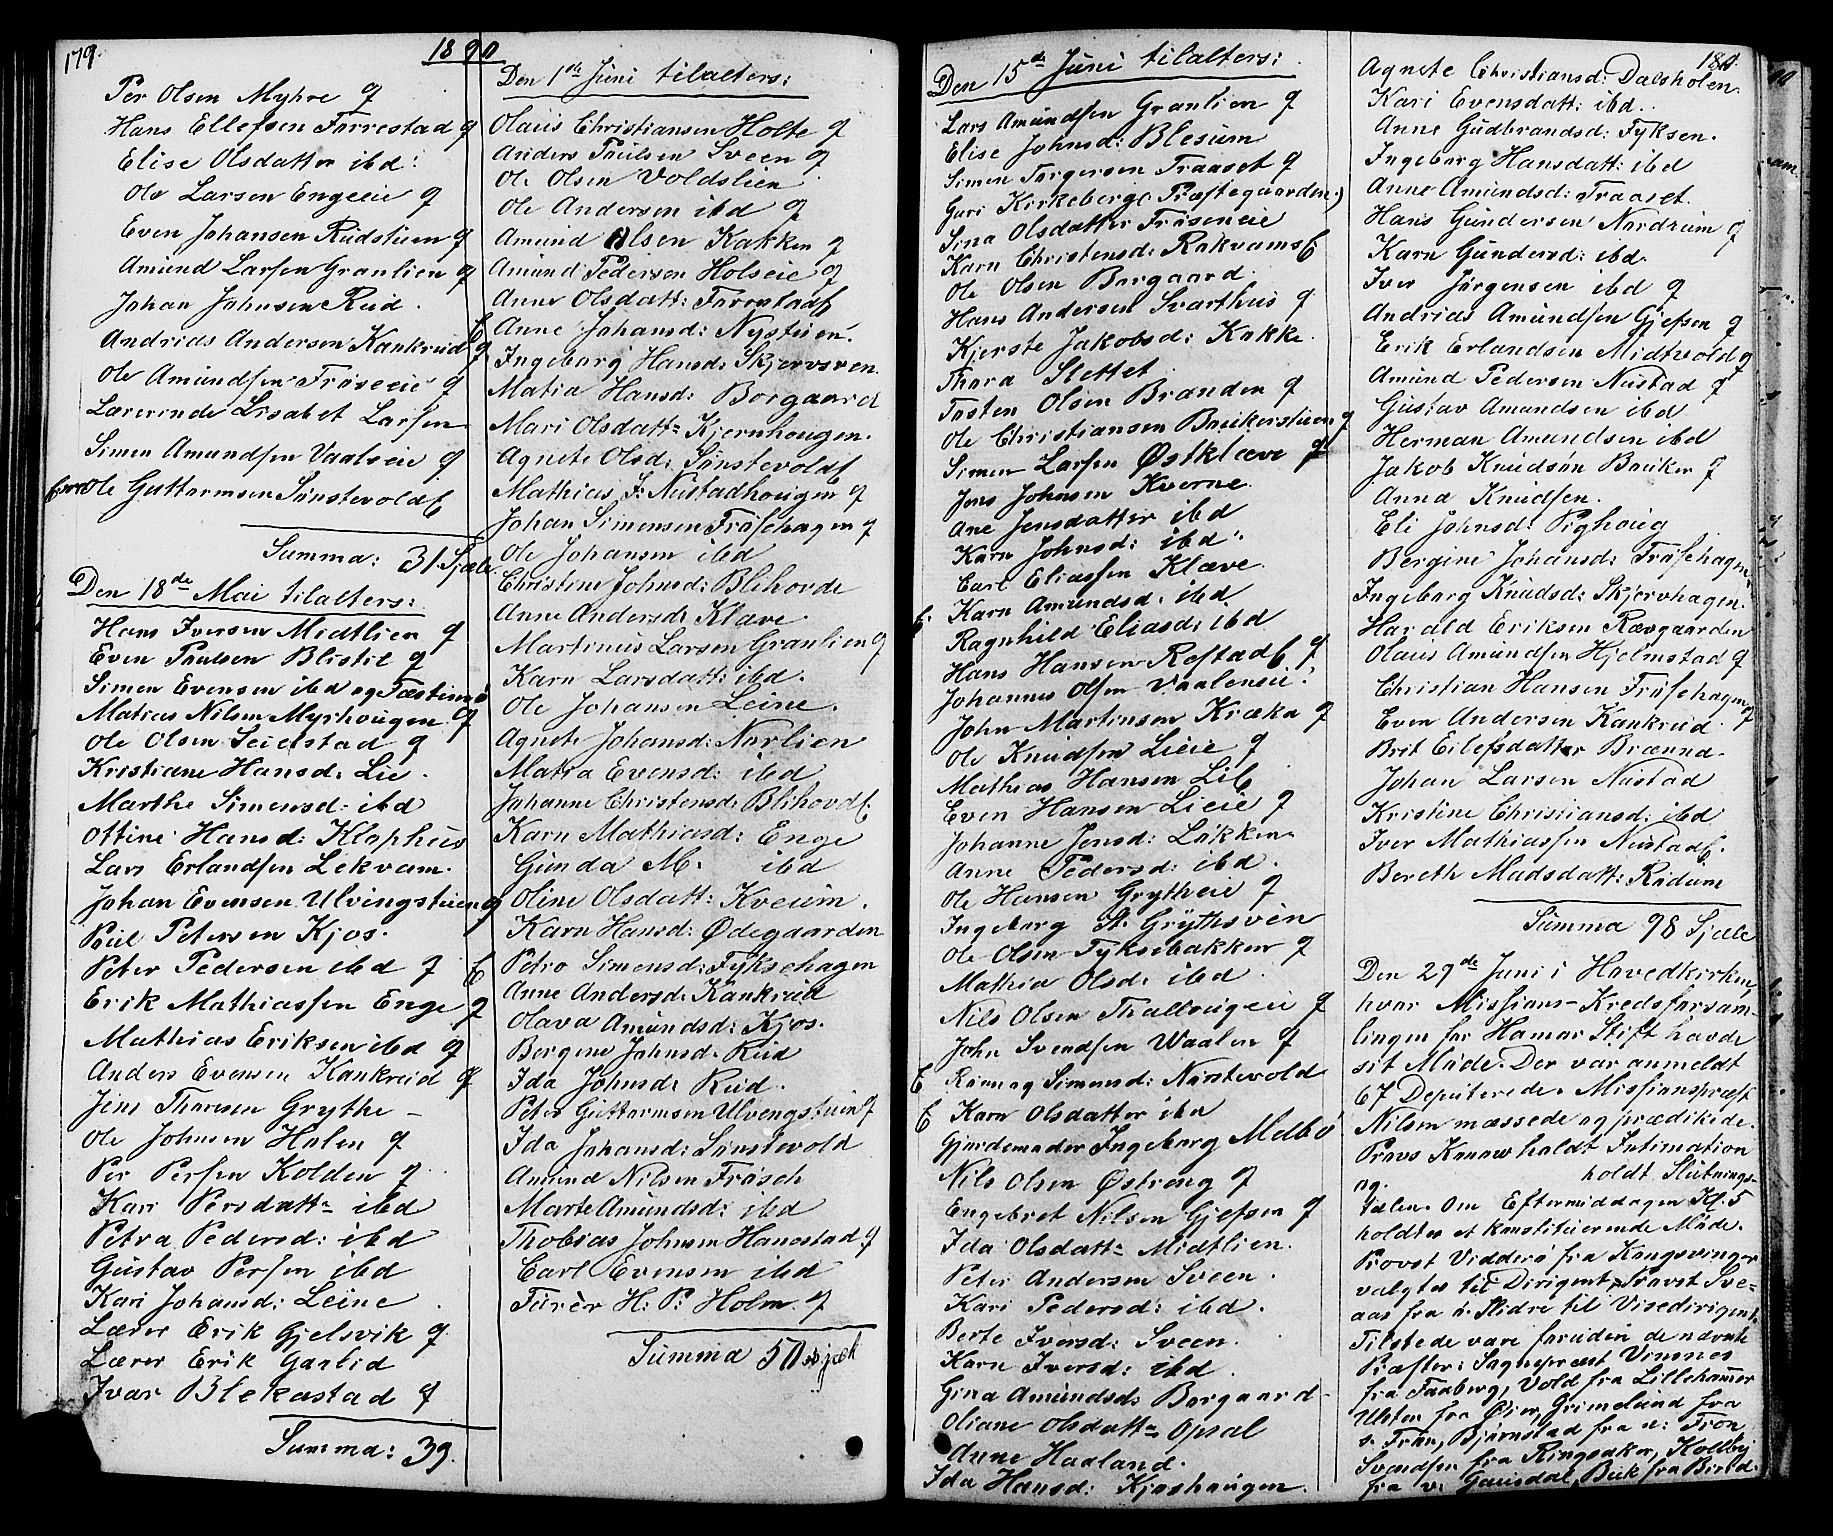 179.
1890
Per Olsen Myhre og
Hans Ellefsen Forrestad og
Elise Olsdatter ibd:
Ole Larsen Engeeie og
Even Johansen Rudstuen og
Amund Larsen Granlien og
Johan Johnsen Rud.
Andrias Andersen Kankrud og
Ole Amundsen Fröseeie og
Lærerinde Lisabet Larsen
Simen Amundsen Vaaleeie og
Ole Guttormsen Sönstevold E
Summa: 31 Sjæle
Den 18de Mai tilalters:
Hans Iversen Midtlien og
Even Paulsen Blistil og
Simen Evensen ibd og Fæstemö
Matias Nilsen Myrhougen og
Ole Olsen Seielstad og
Kristiane Hansd: Lie.
Marthe Simensd: ibd
Ottine Hansd: Klophus
Lars Erlandsen Lekvam.
Johan Evensen Ulvingstuen og
Poul Petersen Kjos.
Peter Pedersen ibd og
Erik Mathiassen Enge og
Mathias Eriksen ibd og
Anders Evensen Kankrud og
Jens Thoresen Grythe -
Ole Johnsen Holen og
Per Persen Kolden og
Kari Persdatt: ibd
Petra Pedersd: ibd
Gustav Persen ibd
Kari Johansd: Leine
Lærer Erik Gjelsvik og
Lærer Erik Gaalid
Ivar Blekastad og
Summa: 39.
Den 1ste Juni tilalters:
Olaus Christiansen Holte og
Anders Paulsen Sveen og
Ole Olsen Voldslien
Ole Andersen ibd og
Amund Olsen Kakken og
Amund Pedersen Holseie og
Anne Olsdatt: Forrestad E
E Anne Johansd: Nystuen.
Ingeborg Hansd: Skjervoren.
Matia Hansd: Borgaard
Mari Olsdatt: Kjernhougen.
Agnete Olsd: Sönstevold E
Mathias J: Nustadhougen og
Johan Simensen Frösehagen og
Ole Johansen ibd
Christine Johnsd: Blihovde
Anne Andersd: Klæve.
Martinus Larsen Granlien og
Karn Larsdatt: ibd.
Ole Johansen Leine.
Agnete Johansd: Norlien
Matia Evensd: ibd
Johanne Christensd: Blihovd E
Karn Mathiasd: Enge
Gunda M. ibd
Oline Olsdatt: Kveum.
Karn Hansd: Ødegaarden
E Petro Simensd: Fyksehagen
Anne Andersd: Kankrud
Olava Amundsd: Kjos.
Bergine Johnsd: Rud
Ida Johnsd: Rud.
Peter Guttormsen Ulvengstuen og
Ida Johansd: Sönstevold
Amund Nilsen Frösch
Marte Amundsd: ibd
Thobias Johnsen Hanestad og
Carl Evensen ibd
Furer H: P: Holm. og
Summa 50 Sjæle
Den 15de Juni tilalters:
Lars Amundsen Granlien og
Elise Johnsd: Blesum
Simen Torgersen Traaset og
Guri Kirkeberg (Præstegaarden)
Sina Olsdatter Fröseneie
Karn Christensd: Rakvams E
Ole Olsen Borgaard.
Hans Andersen Svarthus og
Kjerste Jakobsd: Kakke.
Thora Slettet
Tosten Olsen Branden og
Ole Christiansen Baukerstuen og
Simen Larsen Østklæve og
Jens Johnsen Kverne.
Ane Jensdatter ibd
Karn Johnsd: ibd.
Carl Eliassen Klæve.
Karn Amundsd: ibd
E. Ragnhild Eliasd: ibd
Hans Hansen Rostad E og
Johannes Olsen Vaaleneie.
John Martinsen Kræka og
Ole Knudsen Lieie og
Mathias Hansen Li E
Even Hansen Lieie og
Johanne Jensd: Løkken
Anne Pedersd: ibd.
Ole Hansen Grytheie og
Ingeborg St: Grythsven
Ole Olsen Fyksebakken og
Mathia Olsd: ibd.
Nils Olsen Thallougeie og
John Svendsen Vaalen og
E Rönnog Simensd: Nörstevold
E Karn Olsdatter ibd
Gjordemoder Ingeborg Melbö
Nils Olsen Østrong og
Engebret Nilsen Gjefsen og
Ida Olsdatt: Midtlien.
Peter Andersen Sveen.
Kari Pedersd: ibd.
Berte Iversd: Sveen.
Karn Iversd: ibd.
Gina Amundsd: Borgaard
Oliane Olsdatt: Opsal
Anne Haaland.
Ida Hansd: Kjoshougen.
180.
Agnete Christiansd: Dalsholen.
Kari Evensdatt: ibd.
Anne Gudbrandsd: Fyksen.
Ingeborg Hansdatt: ibd
Anne Amundsd: Traaset.
Hans Gundersen Nordrum og
Karn Gundersd: ibd.
Iver Jörgensen ibd og
Andrias Amundsen Gjefsen og
Erik Erlandsen Midtvold og
Amund Pedersen Nustad og
Gustav Amundsen ibd
Herman Amundsen ibd
Jakob Knudsön Bauker og
Anna Knudsen.
Eli Johnsd: Pighoug
Bergine Johansd: Frösehagen
Ingeborg Knudsd: Skjervhagen.
Harald Eriksen Rævgaarden
Olaus Amundsen Hjelmstad og
Christian Hansen Frösehagen og
Even Andersen Kankrud.
Brit Eilefsdatter Brænna.
Johan Larsen Nustad
Kristine Christiansd: ibd
Iver Mathiassen Nustad E.
Bereth Madsdatt: Rudum
Summa 98 Sjæle
Den 29de Juni i Hovedkirken,
hvor Missions-Kredsforsam-
lingen for Hamar Stift havde
sit Möde. Der var anmeldt
67 Deputerede. Missionspræst
Nilsen mæssede og prædikede.
Provs Kanow holdt Intimation
og. holdt Slutnings-
talen. Om Eftermiddagen Kl. 5
holdtes et konstituerende Möde.
Provst Vidderö fra Kongsvinger
valgtes til Dirigent, Provst Sve-
aas fra ö: Slidre til Visedirigent.
Tilstede vare foruden de nævnte
Præster: Sognepræst Vinsnes
fra Faaberg, Vold fra Lillehamer
Ulsten fra Øier, Grimelund fra
s. Fron, Bjørnstad fra n: Fron
Svendsen fra Ringsaker, Koldby
fra v: Gausdal, Buk fra Birid.